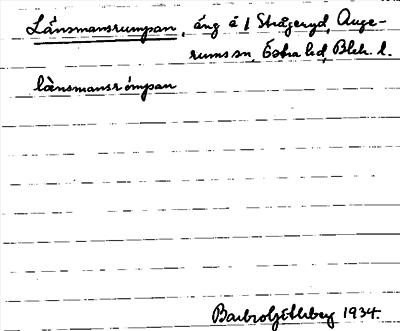 Länsmansrumpan, äng å 1 Strågeryd, Auge-
rums sn, Östra hd, Blek. l.
lànsmansrómpan
Barbro Göthberg 1934.